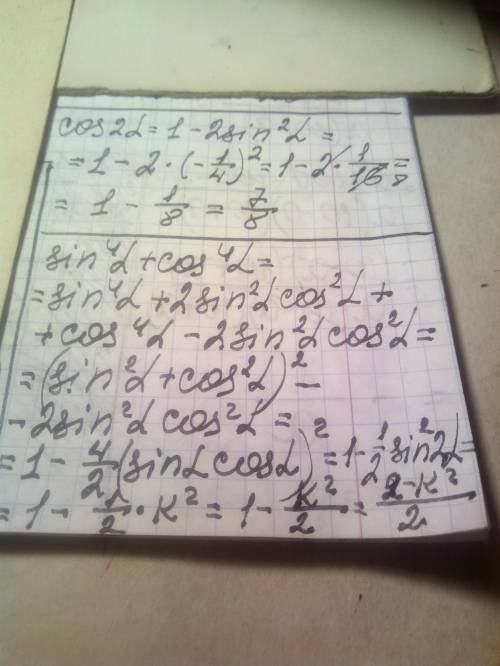 cos2α = 1 - 2sin²α =
= 1 - 2·(-1/4)² = 1 - 2·1/16 =
8
= 1 - 1/8 = 7/8
sin⁴α + cos⁴α =
= sin⁴α + 2sin²α cos²α +
+ cos⁴α - 2sin²α cos²α =
= (sin²α + cos²α)² -
- 2sin²α cos²α =
= 1 - 4/2 (sinα cosα)² = 1 - 1/2 sin²2α =
= 1 - 1/2 · K² = 1 - K²/2 = (2-K²)/2